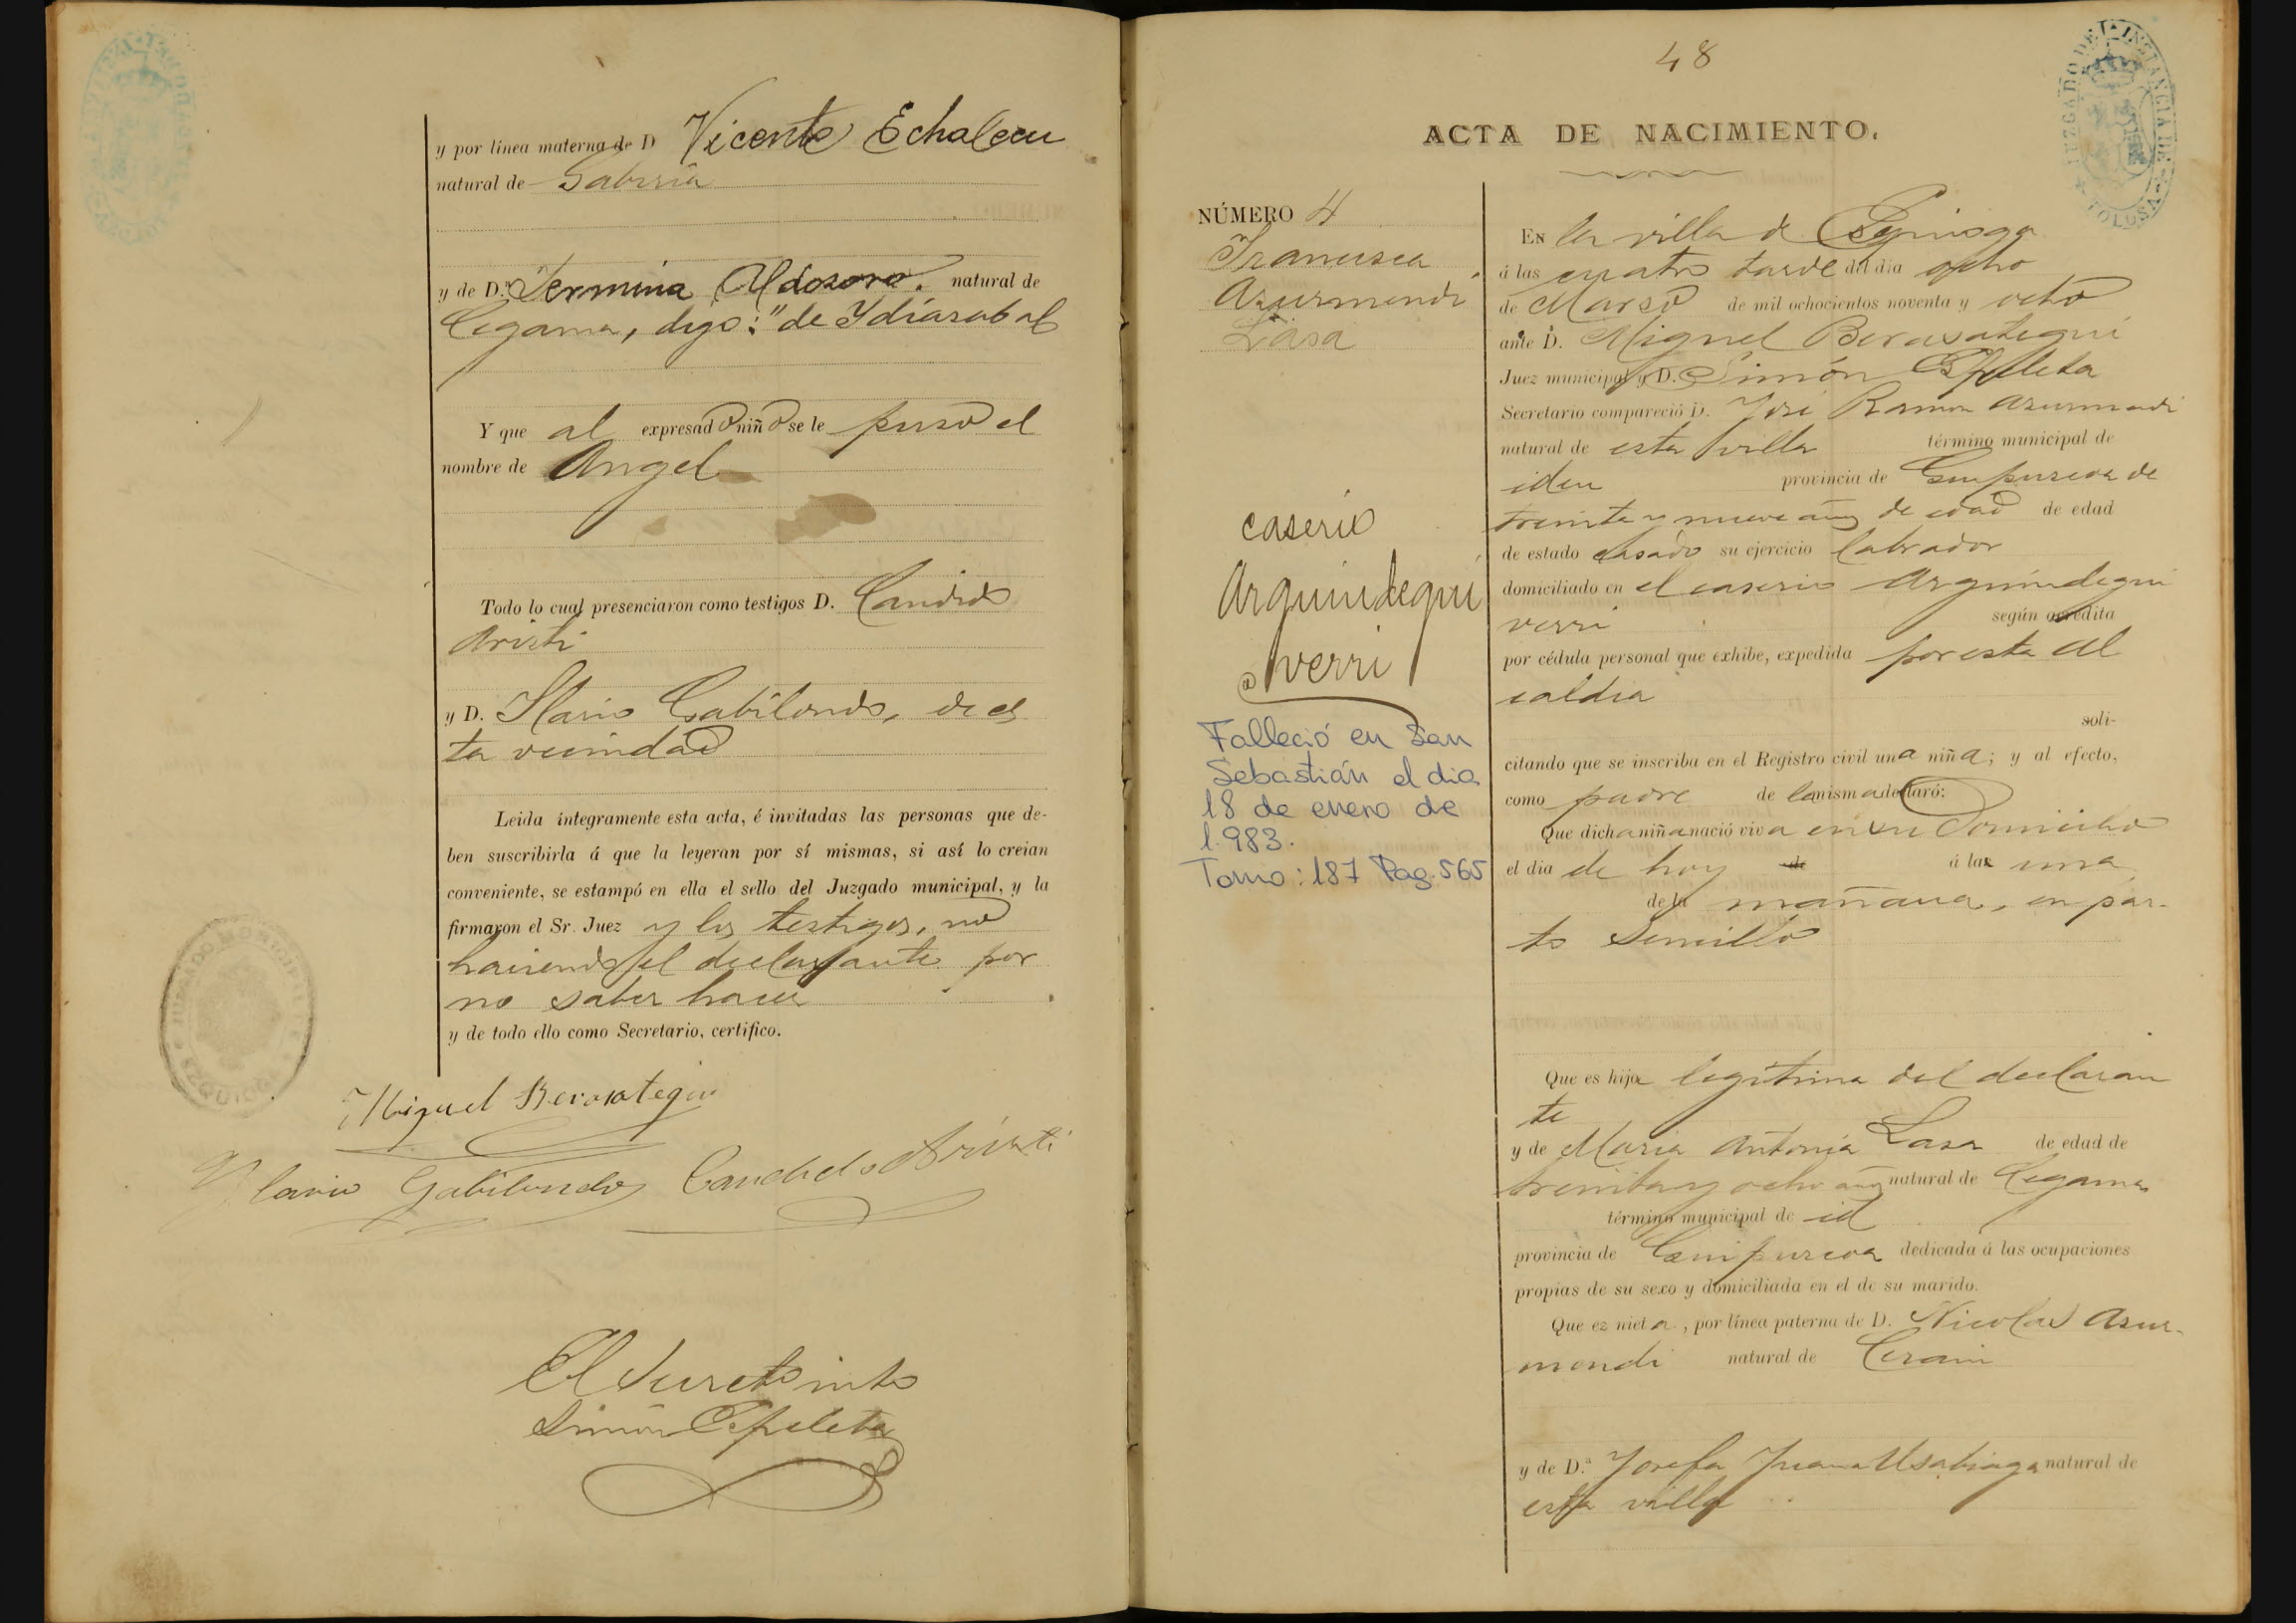 y por línea materna de D Vicente Echaleeu
natural de Gabiria
y de D.ª Fermina Aldosoro. natural de
Cegama, digo: "de Ydiasabal
Y que al expresado niño se le puso el
nombre de Angel
Todo lo cual presenciaron como testigos D. Candido
Aristi
y D. Ylario Gabilondo, de es
ta vecindad
Leida íntegramente esta acta, é invitadas las personas que de-
ben suscribirla á que la leyeran por sí mismas, si así lo creian
conveniente, se estampó en ella el sello del Juzgado municipal, y la
firmaron el Sr. Juez y los testigos, no
haciendo el declarante por
no saber hacer
y de todo ello como Secretario, certifico.
Miguel Berasategui
Ylario Gabilondo Candido Aristi
El Secretario
Simón Espeleta
48
JUZGADO DE 1ª INSTANCIA DE TOLOSA
ACTA DE NACIMIENTO.
NÚMERO 4
Francisca
Azurmendi
Lasa
caserio
Arguindegui
verri
Falleció en San
Sebastián el dia
18 de enero de
1.983.
Tomo: 187 Pag. 565
En la villa de
á las cuatro tarde del dia ocho
de Marso de mil ochocientos noventa y ocho
ante D. Miguel Berasategui
Juez municipal y D. Simón Espeleta
Secretario compareció D. José Ramon Asurmendi
natural de esta villa término municipal de
idem provincia de Guipuscoa de
treinta y nueve años de edad de edad
de estado casado su ejercicio labrador
domiciliado en el caserio Arguindegui
verri según acredita
por cédula personal que exhibe, expedida por esta Al
caldia
soli-
citando que se inscriba en el Registro civil una niña; y al efecto,
como padre de la misma declaró:
Que dicha niña nació viva en su domicilio
el dia de hoy de á la una
de la mañana, en par-
to sencillo
Que es hija legítima del declaran
te
y de Maria Antonia Lasa de edad de
treinta y ocho años natural de Cegama
término municipal de id
provincia de Guipuscoa dedicada á las ocupaciones
propias de su sexo y domiciliada en el de su marido.
Que es nieta, por línea paterna de D. Nicolas Asur-
mendi natural de Cerain
y de D.ª Josefa Juana Usabiaga natural de
esta villa